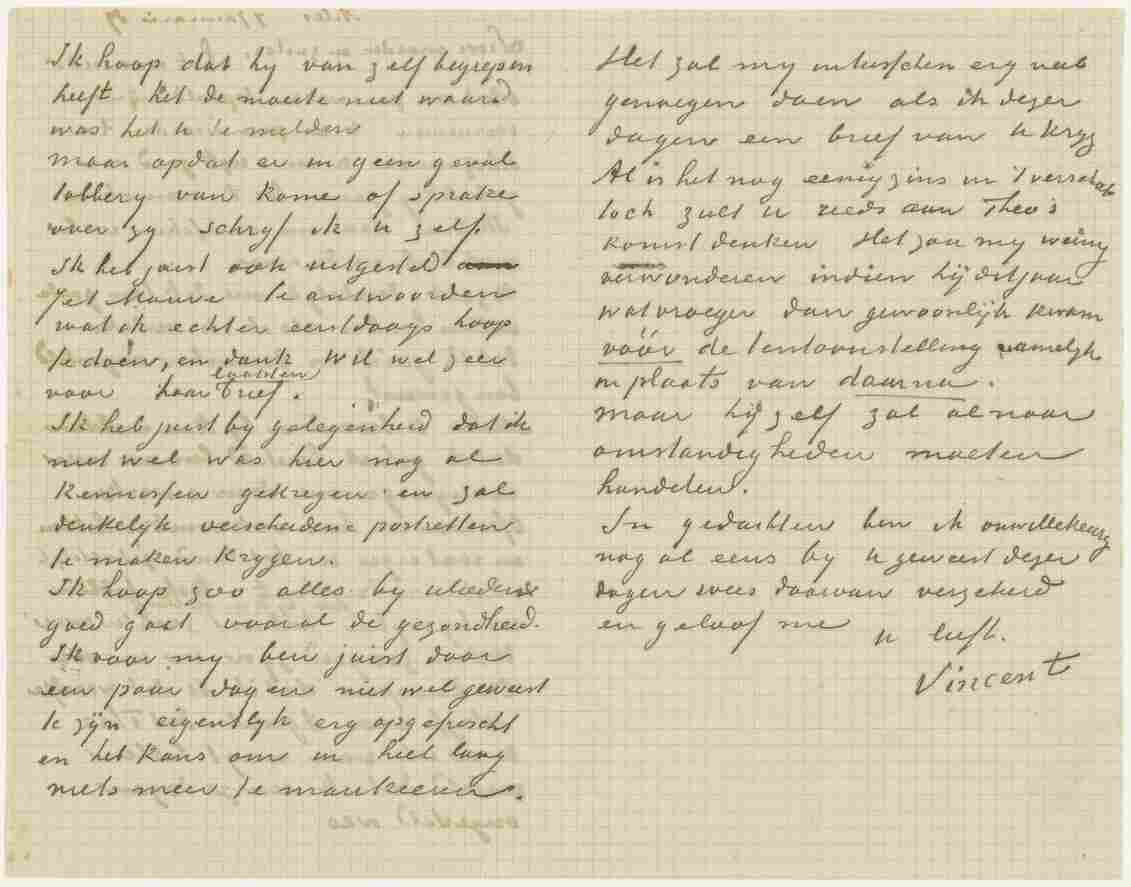 Ik hoop dat hy van zelf begrepen
heeft het de moeite niet waard
was het U te melden
maar opdat er in geen geval
tobbery van kome of sprake
over zy schryf ik U zelf.
Ik heb juist ook uitgesteld aan
Jet Mauve te antwoorden
wat ik echter eerstdaags hoop
te doen, en dank wil wel zeer
voor haar laatsten brief.
Ik heb juist by gelegenheid dat ik
niet wel was hier nog al
kennissen gekregen en zal
denkelyk verscheidene portretten
te maken krygen.
Ik hoop zoo alles by ulieden
goed gaat vooral de gezondheid.
Ik voor my ben juist door
een paar dagen niet wel geweest
te zijn eigentlyk erg opgefrischt
en heb kans om in heel lang
niets meer te mankeeren.
Het zal my intusschen erg veel
genoegen doen als ik dezer
dagen een brief van U kryg
Al is het nog eenigzins in 't verschiet
toch zult U reeds aan Theo's
komst denken Het zou my weinig
verwonderen indien hij dit jaar
wat vroeger dan gewoonlijk kwam
vóór de tentoonstelling namelyk
in plaats van daarna.
maar hij zelf zal al naar
omstandigheden moeten
handelen.
In gedachten ben ik onwillekeurig
nog al eens by U geweest dezer
dagen wees daarvan verzekerd
en geloof me
U liefh.
Vincent